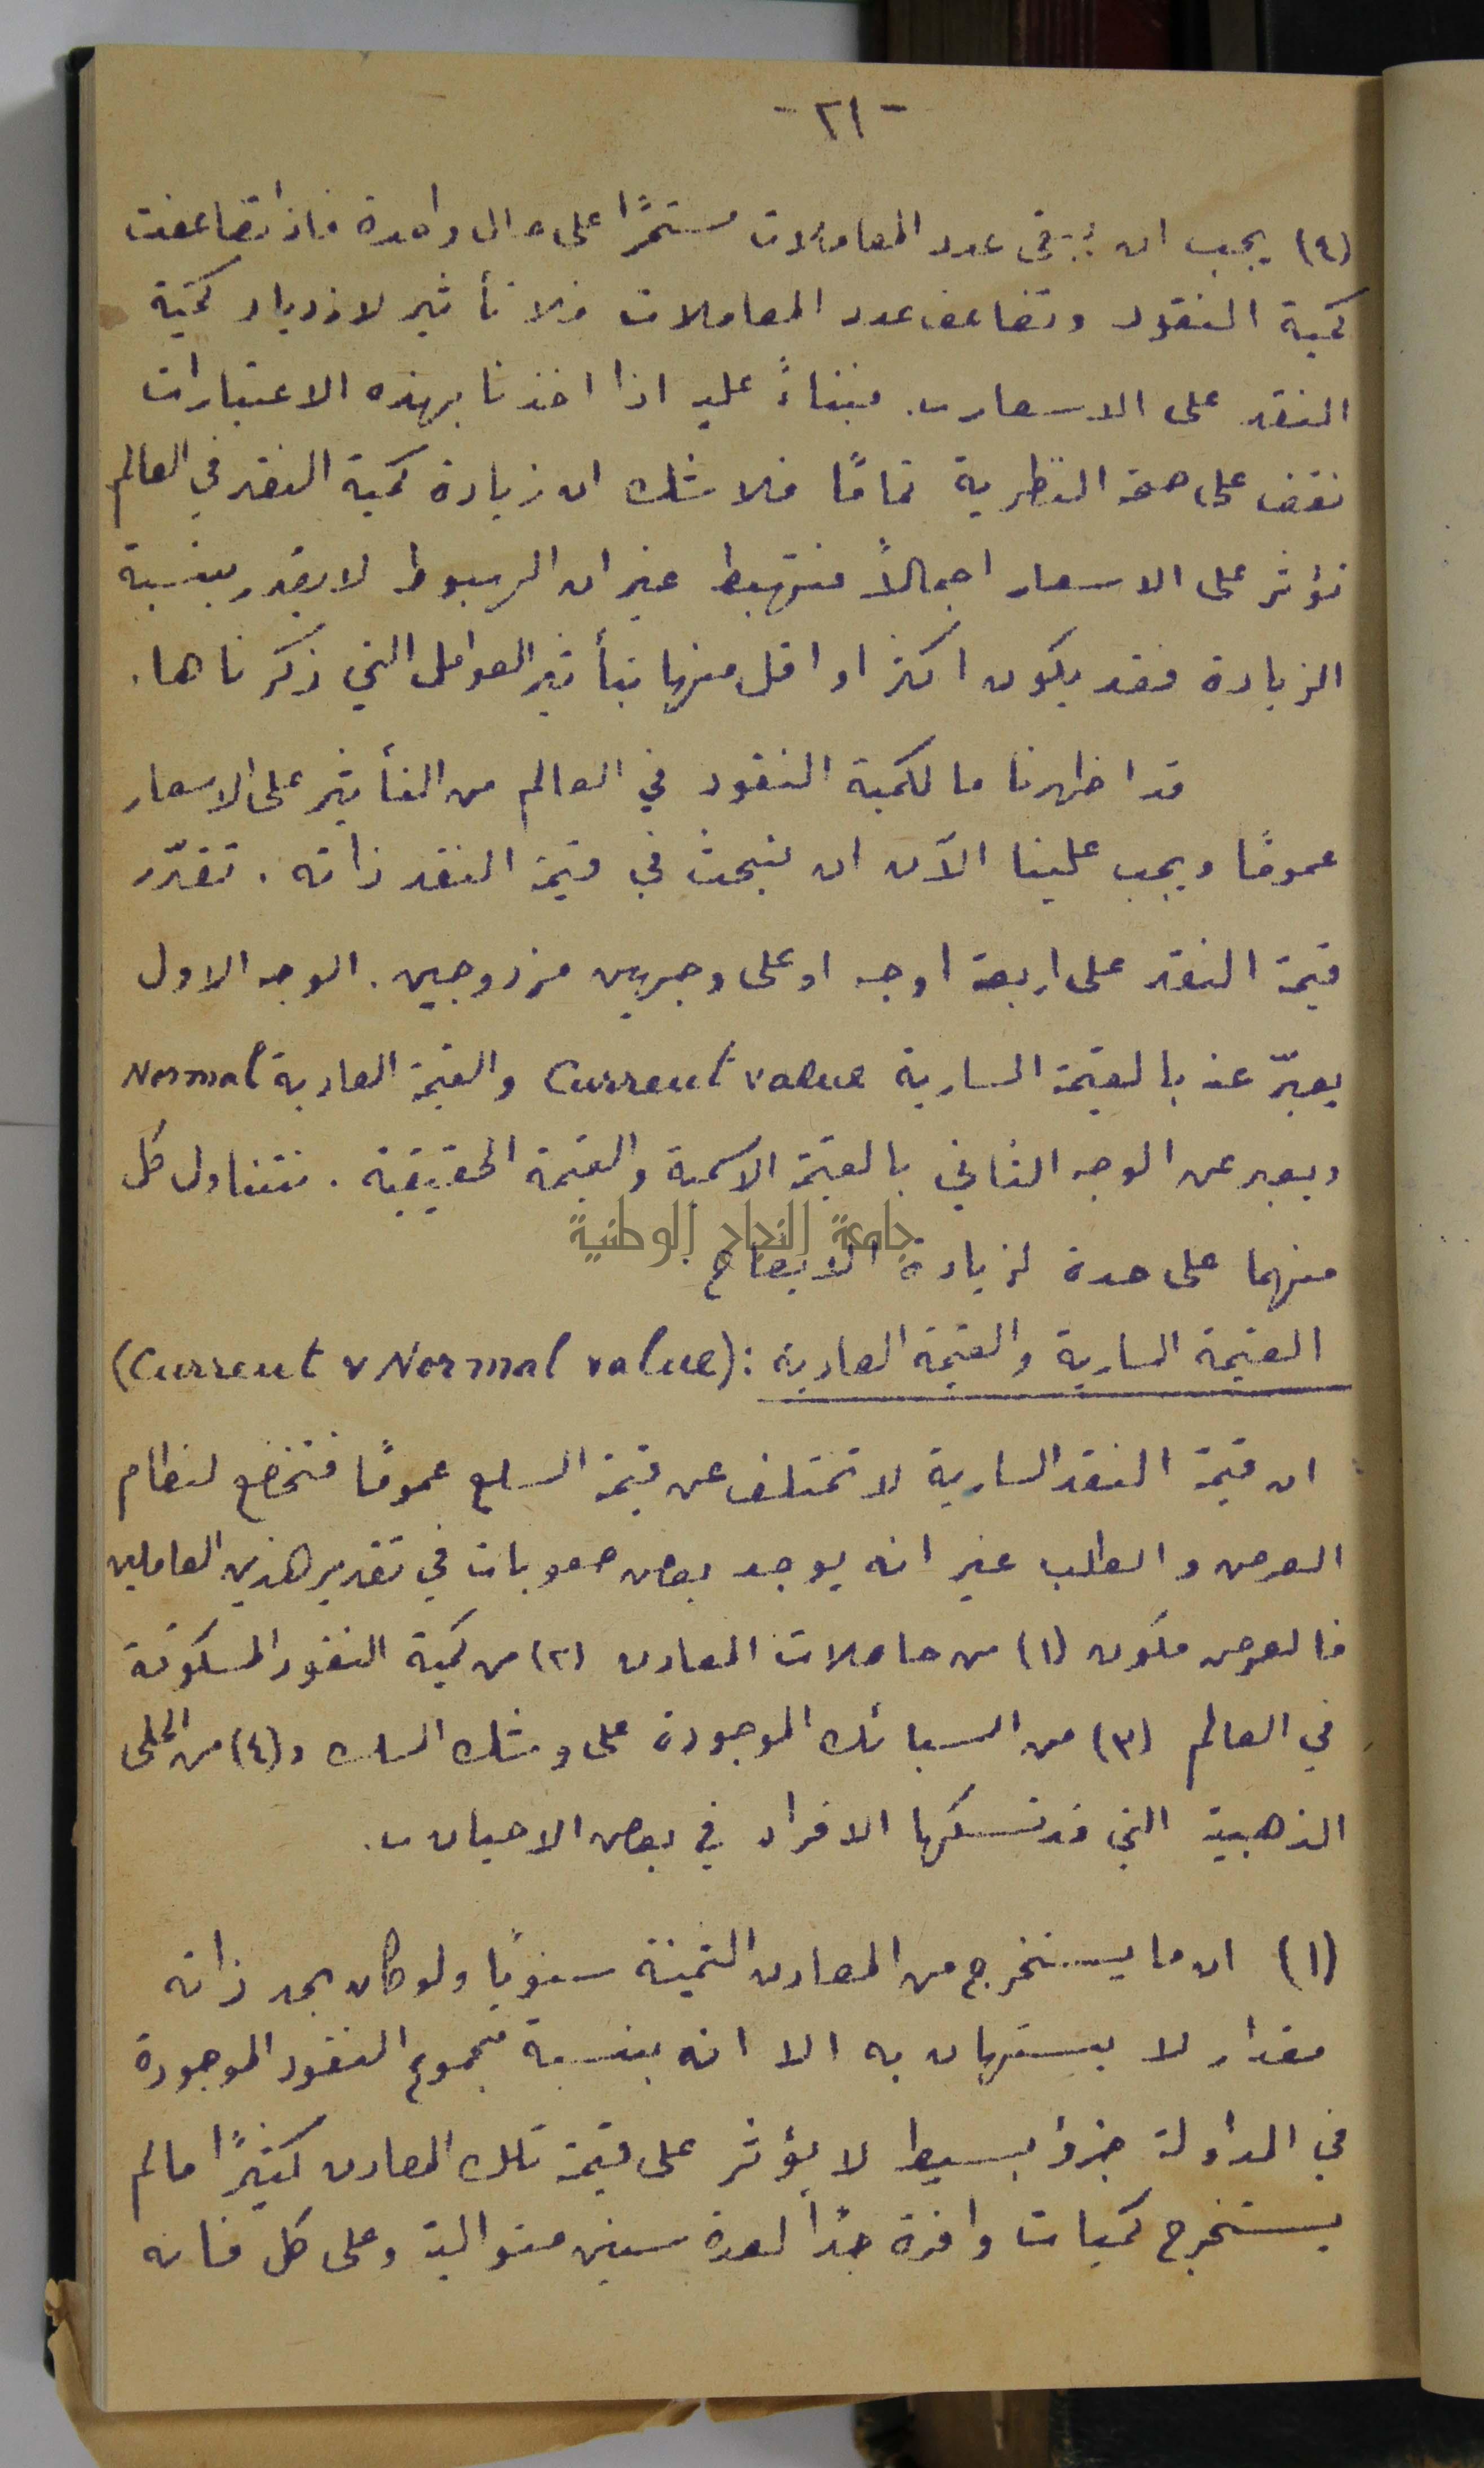 - ٢١ -
(٤) يجب ان يبقى عدد المعاملات مستمرًا على حال واحدة فاذا تضاعفت
كمية النقود وتضاعف عدد المعاملات فلا تأثير لازدياد كمية
النقد على الاسعار. فبناءً عليه اذا اخذنا بهذه الاعتبارات
نقف على صحة النظرية تمامًا فلا شك ان زيادة كمية النقد في العالم
تؤثر على الاسعار اجمالاً فتهبط غير ان الهبوط لا يقدر بنسبة
الزيادة فقد يكون اكثر او اقل منها بتأثير العوامل التي ذكرناها.
قد اظهرنا ما لكمية النقود في العالم من التأثير على الاسعار
عمومًا ويجب علينا الآن ان نبحث في قيمة النقد ذاته. تقدّر
قيمة النقد على اربعة اوجه او على وجهين مزدوجين. الوجه الاول
يعبّر عنه بالقيمة السارية Current value والقيمة العادية Normal
ويعبر عن الوجه الثاني بالقيمة الاسمية والقيمة الحقيقية. نتناول كل
منهما على حدة لزيادة الايضاح
جامعة النجاح الوطنية
القيمة السارية والقيمة العادية: (Current v Normal value)
ان قيمة النقد السارية لا تختلف عن قيمة السلع عمومًا فتخضع لنظام
العرض والطلب غير انه يوجد بعض صعوبات في تقدير هذين العاملين
فالعرض مكون (١) من حاصلات المعادن (٢) من كمية النقود المسكوكة
في العالم (٣) من السبائك الموجودة على وشك السك و(٤) من الحلى
الذهبية التي قد تسكها الافراد في بعض الاحيان.
(١) ان ما يستخرج من المعادن الثمينة سنويًا ولو كان بحد ذاته
مقدار لا يستهان به الا انه بنسبة مجموع النقود الموجودة
في المداولة جزؤ بسيط لا يؤثر على قيمة تلك المعادن كثيرًا ما لم
يستخرج كميات وافرة جدًا لعدة سنين متوالية وعلى كل فانه